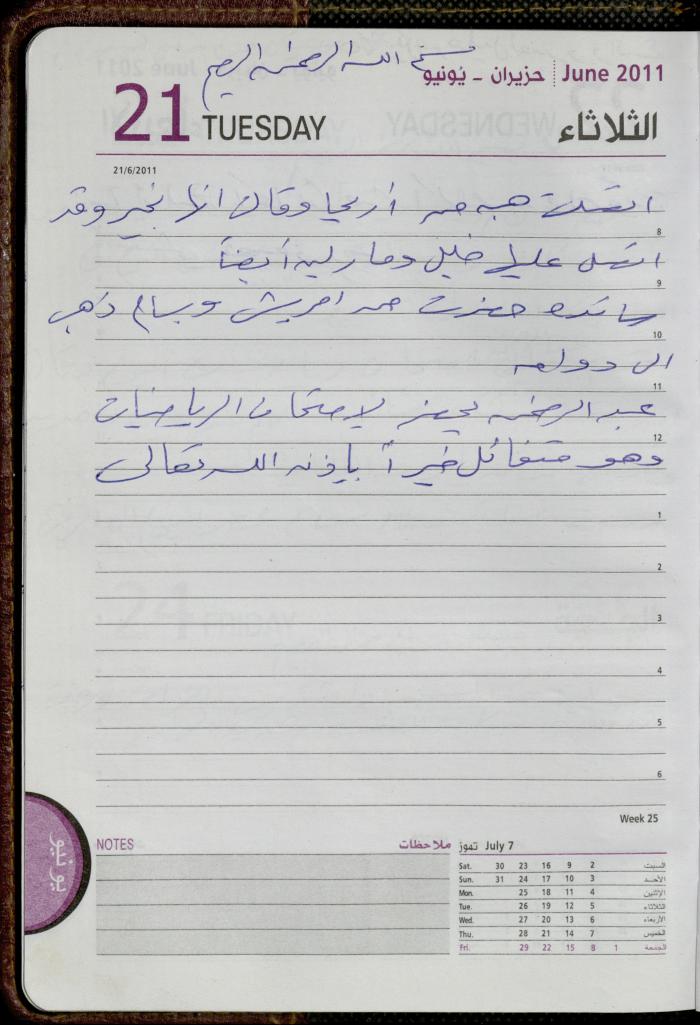 بسم الله الرحمن الرحيم
June 2011 حزيران - يُونيو
21 TUESDAY الثلاثاء
21/6/2011
اتصلت هبه من أريحا وقالت انها بخير وقد
8
اتصل عليها خليل ومارلين أيضاً
9
حضرت من وبسام ذهب
10
الى
11
عبد الرحمن يحضر لامتحان الرياضيات
12
وهو متفائل خيراً بإذن الله تعالى
1
2
3
4
5
6
Week 25
يونيو
NOTES ملاحظات
July 7 تموز
Sat. 30 23 16 9 2 السبت
Sun. 31 24 17 10 3 الأحد
Mon. 25 18 11 4 الإثنين
Tue. 26 19 12 5 الثلاثاء
Wed. 27 20 13 6 الأربعاء
Thu. 28 21 14 7 الخميس
Fri. 29 22 15 8 1 الجمعة